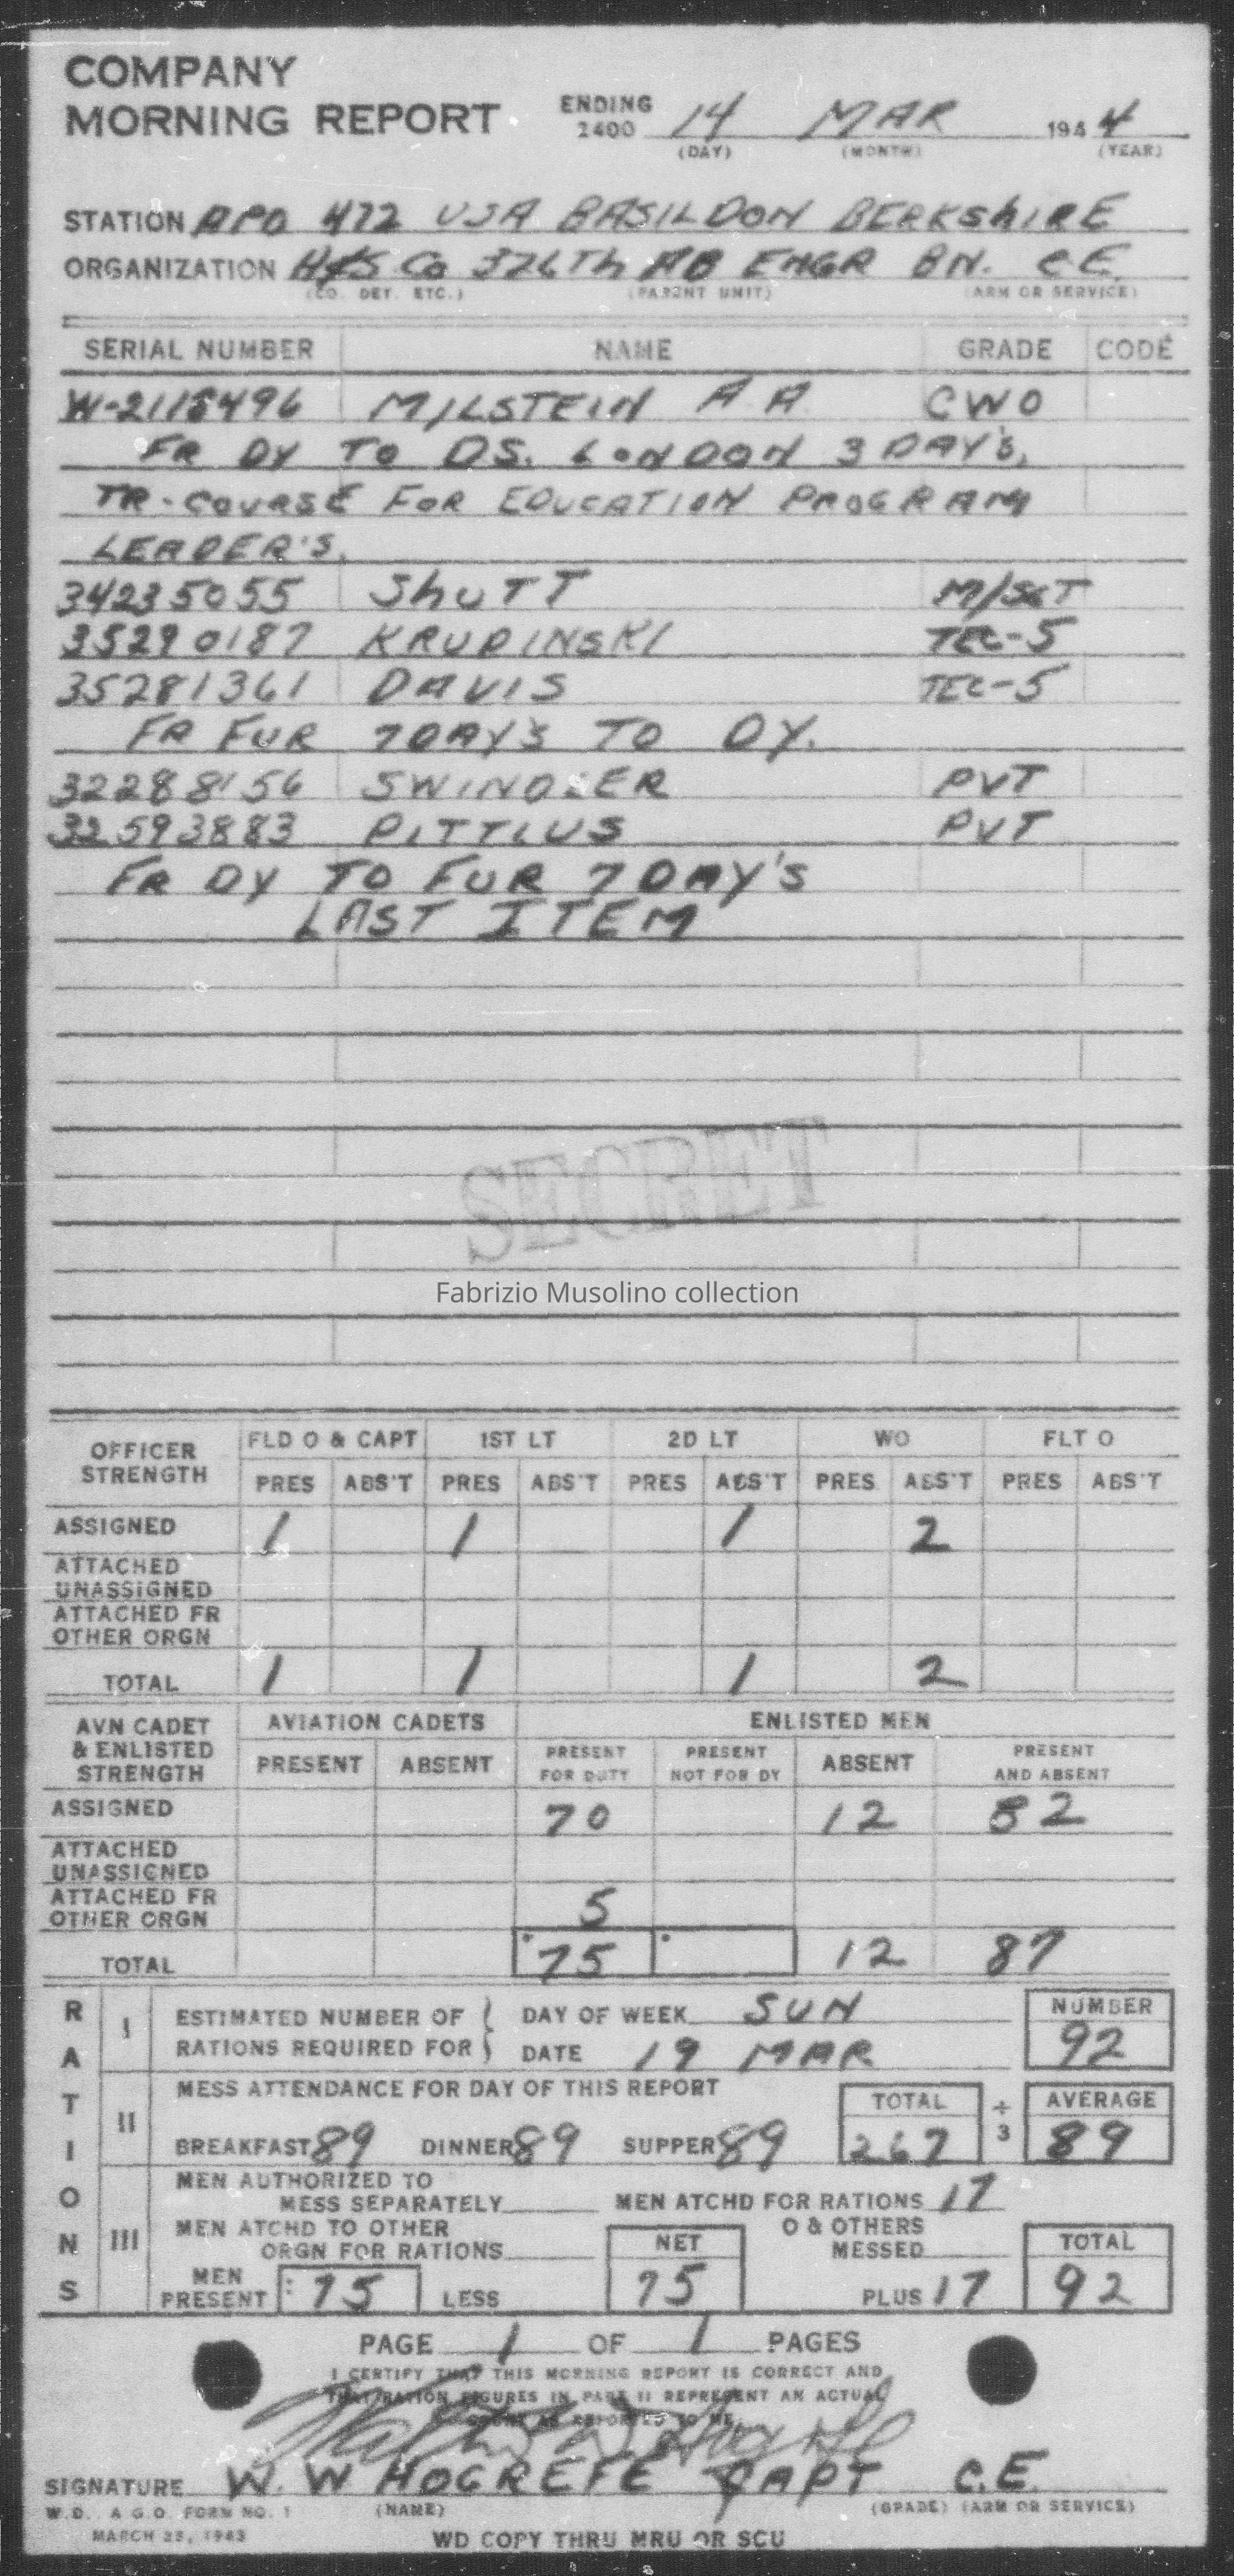 COMPANY
MORNING REPORT ENDING 2400 14 MAR 1944
(DAY) (MONTH) (YEAR)
STATION APO 472 USA BASILDON BERKSHIRE
ORGANIZATION H&S Co 326Th AB ENGR BN. C.E.
(CO. DET. ETC.) (PARENT UNIT) (ARM OR SERVICE)
SERIAL NUMBER NAME GRADE CODE
W-2118496 MILSTEIN A A CWO
FR DY TO DS. LONDON 3 DAY'S,
TR-COURSE FOR EDUCATION PROGRAM
LEADER'S.
34235055 ShUTT M/SGT
35290187 KRUPINSKI TEC-5
35281361 DAVIS TEC-5
FR FUR 7DAY'S TO DY.
32288156 SWINDLER PVT
32593883 PITTIUS PVT
FR DY TO FUR 7DAY'S
LAST ITEM
SECRET
Fabrizio Musolino collection
OFFICER STRENGTH FLD O & CAPT 1ST LT 2D LT WO FLT O
PRES ABS'T PRES ABS'T PRES ABS'T PRES ABS'T PRES ABS'T
ASSIGNED 1 1 1 2
ATTACHED
UNASSIGNED
ATTACHED FR
OTHER ORGN
TOTAL 1 1 1 2
AVN CADET & ENLISTED STRENGTH AVIATION CADETS ENLISTED MEN
PRESENT ABSENT PRESENT FOR DUTY PRESENT NOT FOR DY ABSENT PRESENT AND ABSENT
ASSIGNED 70 12 82
ATTACHED
UNASSIGNED
ATTACHED FR
OTHER ORGN 5
TOTAL 75 12 87
RATIONS
I ESTIMATED NUMBER OF DAY OF WEEK SUN NUMBER
RATIONS REQUIRED FOR DATE 19 MAR 92
II MESS ATTENDANCE FOR DAY OF THIS REPORT TOTAL ÷ 3 AVERAGE
BREAKFAST 89 DINNER 89 SUPPER 89 267 89
III MEN AUTHORIZED TO
MESS SEPARATELY MEN ATCHD FOR RATIONS 17
MEN ATCHD TO OTHER
ORGN FOR RATIONS NET O & OTHERS MESSED TOTAL
MEN PRESENT 75 LESS 75 PLUS 17 92
PAGE 1 OF 1 PAGES
I CERTIFY THAT THIS MORNING REPORT IS CORRECT AND
THAT RATION FIGURES IN PART II REPRESENT AN ACTUAL
COUNT AS REPORTED TO ME.
SIGNATURE W. W HOGREFE CAPT C.E.
W.D., A.G.O. FORM NO. 1 (NAME) (GRADE) (ARM OR SERVICE)
MARCH 25, 1943
WD COPY THRU MRU OR SCU